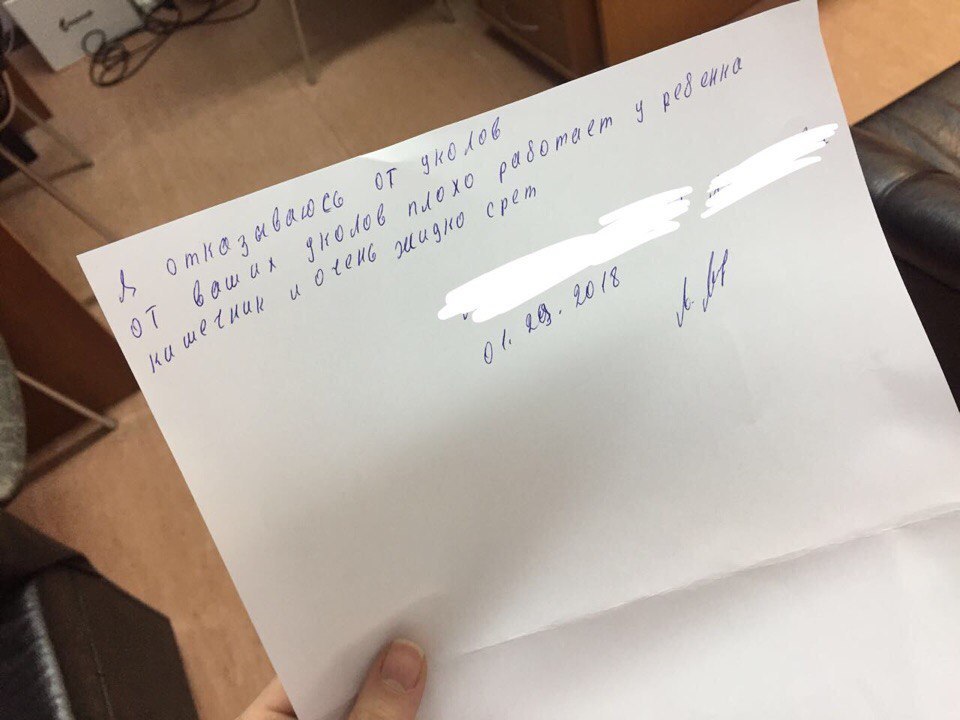 Я отказываюсь от уколов
от ваших уколов плохо работает у ребенка
кишечник и очень жидко срет
2018